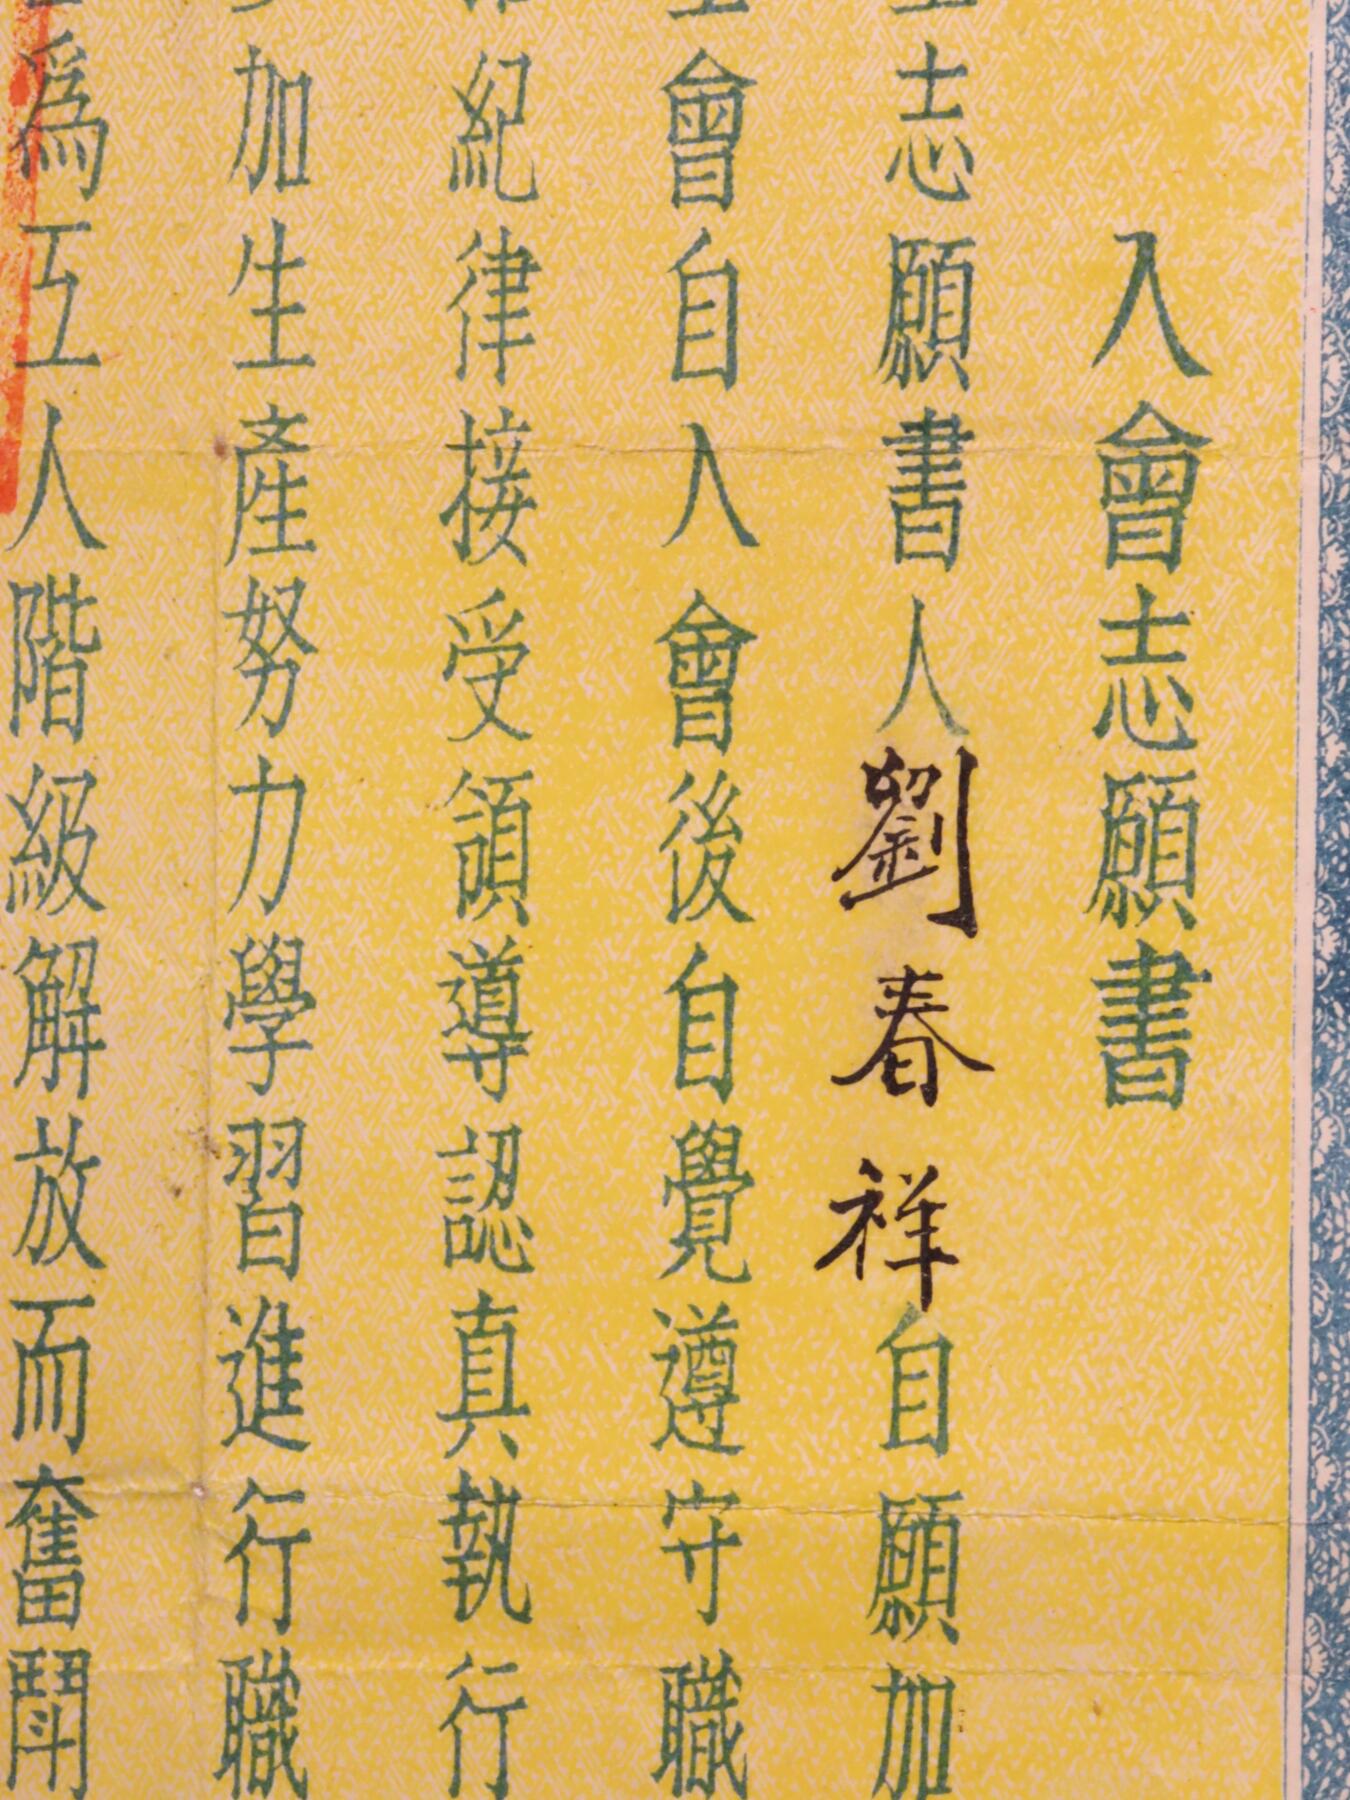 入會志願書
志願書人劉春祥自願加
會自入會後自覺遵守職
紀律接受領導認真執行
加生產努力學習進行職
為工人階級解放而奮鬪